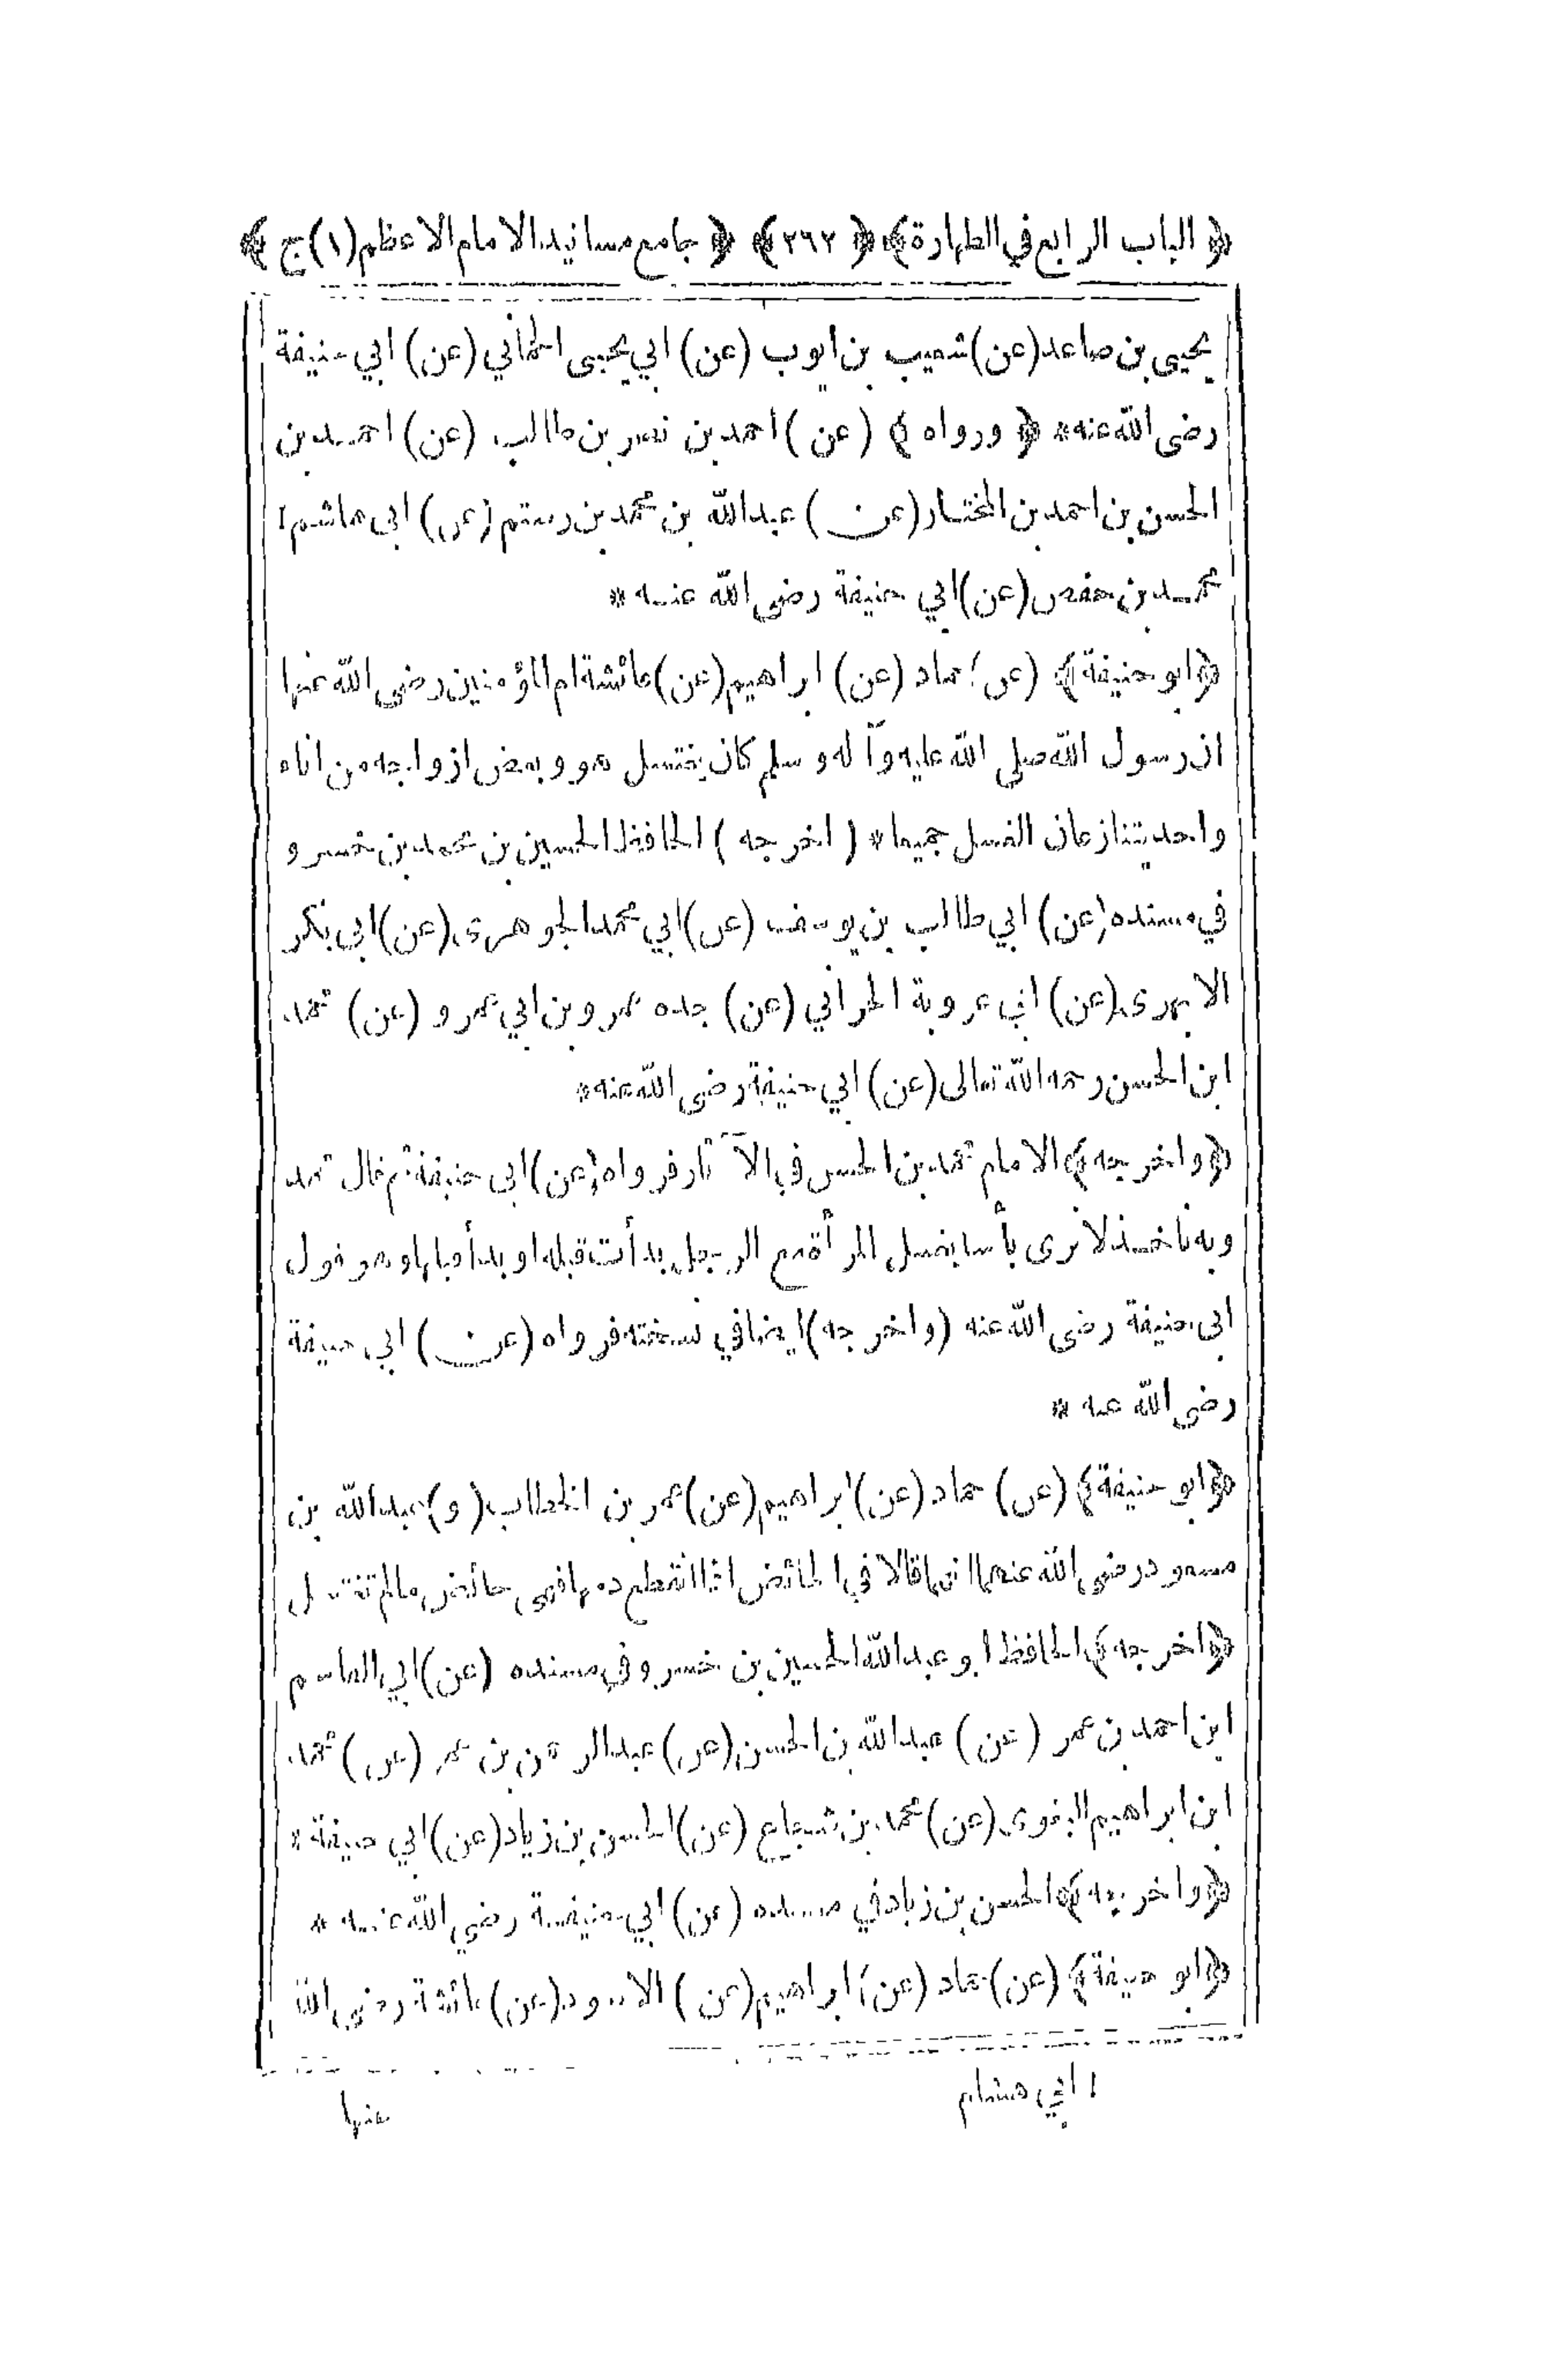 ﴿ الباب الرابع في الطهارة ﴾ ﴿ ٢٦٢ ﴾ ﴿ جامع مسانيد الامام الاعظم (١) ج ﴾
يحيى بن صاعد (عن) شعيب بن ايوب (عن) ابي يحيى الحماني (عن) ابي حنيفة
رضى الله عنه * ﴿ ورواه ﴾ (عن) احمد بن نصر بن طالب (عن) احمد بن
الحسن بن احمد بن المختار (عن) عبدالله بن محمد بن رستم (عن) ابى هاشم ١
محمد بن حفص (عن) ابي حنيفة رضى الله عنه *
﴿ ابو حنيفة ﴾ (عن) حماد (عن) ابراهيم (عن) عائشة ام المؤمنين رضى الله عنها
ان رسول الله صلى الله عليه وآله وسلم كان يغتسل هو وبعض ازواجه من اناء
واحد يتنازعان الغسل جميعا * (اخرجه) الحافظ الحسين بن محمد بن خسرو
في مسنده (عن) ابي طالب بن يوسف (عن) ابي محمد الجوهرى (عن) ابى بكر
الابهرى (عن) ابي عروبة الحراني (عن) جده عمرو بن ابي عمرو (عن) محمد
ابن الحسن رحمه الله تعالى (عن) ابي حنيفة رضى الله عنه *
﴿ واخرجه ﴾ الامام محمد بن الحسن في الآثار فرواه (عن) ابى حنيفة ثم قال محمد
وبه ناخذ لا نرى بأسا بغسل المرأة مع الرجل بدأت قبله او بدأ قبلها وهو قول
ابى حنيفة رضى الله عنه (واخرجه) ايضا في نسخته فرواه (عن) ابي حنيفة
رضى الله عنه *
﴿ ابو حنيفة ﴾ (عن) حماد (عن) ابراهيم (عن) عمر بن الخطاب (و) عبدالله بن
مسعود رضى الله عنهما انهما قالا في الحائض اذا انقطع دمها فهى حائض مالم تغتسل
﴿ اخرجه ﴾ الحافظ ابو عبدالله الحسين بن خسرو في مسنده (عن) ابي القاسم
ابن احمد بن عمر (عن) عبدالله بن الحسن (عن) عبدالرحمن بن عمر (عن) محمد
ابن ابراهيم البغوى (عن) محمد بن شجاع (عن) الحسن بن زياد (عن) ابي حنيفة *
﴿ واخرجه ﴾ الحسن بن زياد في مسنده (عن) ابي حنيفة رضى الله عنه *
﴿ ابو حنيفة ﴾ (عن) حماد (عن) ابراهيم (عن) الاسود (عن) عائشة رضى الله
١ ابي هشام
عنها